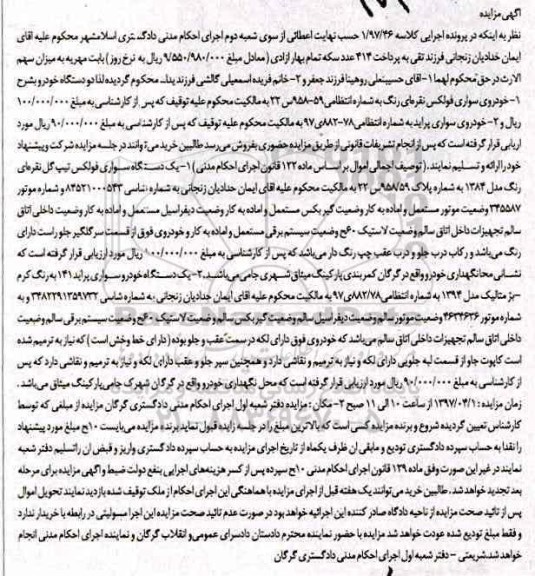 آگهی مزایده
نظر به اینکه در پرونده اجرایی کلاسه ۱/۹۷/۴۶ حسب نهایت اعطائی از سوی شعبه دوم اجرای احکام مدنی دادگستری اسلامشهر محکوم علیه اقای
ایمان خدادیان زنجانی فرزند تقی به پرداخت ۴۱۴ عدد سکه تمام بهار ازادی (معادل مبلغ ۹/۵۵۰/۹۸۰/۰۰۰ ریال به نرخ روز) بابت مهریه به میزان سهم
الارث در حق محکوم لهما ۱-اقای حسینعلی روهینا فرزند جعفر و ۲-خانم فریده اسمعیلی گالشی فرزند یدا... محکوم گردیده لذا دو دستگاه خودرو بشرح
۱-خودروی سواری فولکس نقره‌ای رنگ به شماره انتظامی ۵۹-۹۵۸س۲۲ به مالکیت محکوم علیه توقیف که پس از کارشناسی به مبلغ ۱۰۰/۰۰۰/۰۰۰
ریال و ۲-خودروی سواری پراید به شماره انتظامی ۷۸-۸۸۲ی۹۷ به مالکیت محکوم علیه توقیف که پس از کارشناسی به مبلغ ۹۰/۰۰۰/۰۰۰ ریال مورد
اریابی قرار گرفته است که پس از انجام تشریفات قانونی از طریق مزایده حضوری بفروش می‌رسد طالبین خرید می‌توانند در جلسه مزایده شرکت و پیشنهاد
خود را ارائه و تسلیم نمایند. (توصیف اجمالی اموال بر اساس ماده ۱۲۲ قانون اجرای احکام مدنی) ۱-یک دستگاه سواری فولکس تیپ گل نقره‌ای
رنگ مدل ۱۳۸۴ به شماره پلاک ۹۵۸/۵۹س۲۲ به مالکیت محکوم علیه اقای ایمان خدادیان زنجانی به شماره شاسی ۸۴۵۲۱۰۰۰۵۴۳ و شماره موتور
۳۴۵۵۸۷ وضعیت موتور مستعمل و اماده به کار وضعیت گیر بکس مستعمل و اماده به کار وضعیت دیفراسیل مستعمل و اماده به کار وضعیت داخلی اتاق
سالم تجهیزات داخل اتاق سالم وضعیت لاستیک ۶۰٪ وضعیت سیستم برقی مستعمل و اماده به کار و خودروی فوق از قسمت سر گلگیر جلو راست دارای
رنگ می‌باشد و رکاب درب جلو و درب عقب چپ رنگ دار می‌باشد که پس از کارشناسی به مبلغ ۱۰۰/۰۰۰/۰۰۰ ریال مورد ارزیابی قرار گرفته است که
نشانی محانگهداری خودرو واقع در گرگان کمربندی پارکینگ میثاق شهری جامی می‌باشد. ۲-یک دستگاه خودرو سواری پراید ۱۴۱ به رنگ کرم
-بژ متالیک مدل ۱۳۹۴ به شماره انتظامی ۸۸۲/۷۸ی۹۷ به مالکیت محکوم علیه اقای ایمان خدادیان زنجانی به شماره شاسی ۳۴۸۲۲۹۱۲۵۹۷۳۲ و به
شماره موتور ۴۶۳۴۶۳۶ وضعیت موتور سالم وضعیت دیفراسیل سالم وضعیت گیربکس سالم وضعیت لاستیک ۶۰٪ وضعیت سیستم برقی سالم وضعیت
داخلی اتاق سالم تجهیزات داخلی اتاق سالم می‌باشد که خودروی فوق دارای لکه در سمت عقب و جلو بوده (دارای خط وخش است) که نیاز به ترمیم شده
است کاپوت جلو از قسمت لبه جلویی دارای لکه و نیاز به ترمیم و نقاشی دارد و همچنین سپر جلو و عقب دارای لکه و نیاز به ترمیم و نقاشی دارد که پس
از کارشناسی به مبلغ ۹۰/۰۰۰/۰۰۰ ریال مورد ارزیابی قرار گرفته است که محل نگهداری خودرو واقع در گرگان شهرک جامی پارکینگ میثاق می‌باشد.
زمان مزایده: ۱۳۹۷/۰۴/۱ از ساعت ۱۰ الی ۱۱ صبح ۲-مکان: مزایده دفتر شعبه اول اجرای احکام مدنی دادگستری گرگان مزایده از مبلغی که توسط
کارشناس تعیین گردیده شروع و برنده مزایده کسی است که بالاترین مبلغ را در جلسه زایده قبول نماید برنده مزایده می‌بایست ۱۰٪ مبلغ مورد پیشنهاد
را نقدا به حساب سپرده دادگستری تودیع و مابقی ان ظرف یکماه از تاریخ اجرای مزایده به حساب سپرده دادگستری واریز و قبض ان راتسلیم دفتر شعبه
نمایند در غیر این صورت وفق ماده ۱۲۹ قانون اجرای احکام مدنی ۱۰٪ سپرده پس از کسر هزینه‌های اجرایی بنفع دولت ضبط و اگهی مزایده برای مرحله
بعد تجدید خواهد شد. طالبین خرید می‌توانند یک هفته قبل از اجرای مزایده با هماهنگی این اجرای احکام از ملک توقیف شده بازدید نمایند تحویل اموال
پس از تائید صحت مزایده از ناحیه دادگاه صادر کننده این اجرائیه خواهد بود در صورت عدم تائید صحت مزایده این اجرا مسولیتی در رابطه با خریدار ندارد
و فقط مبلغ تودیع شده عودت خواهد شد مزایده با حضور نماینده محترم دادستان دادسرای عمومی و انقلاب گرگان و نماینده اجرای احکام مدنی انجام
خواهد شد.شریعتی - دفتر شعبه اول اجرای احکام مدنی دادگستری گرگان